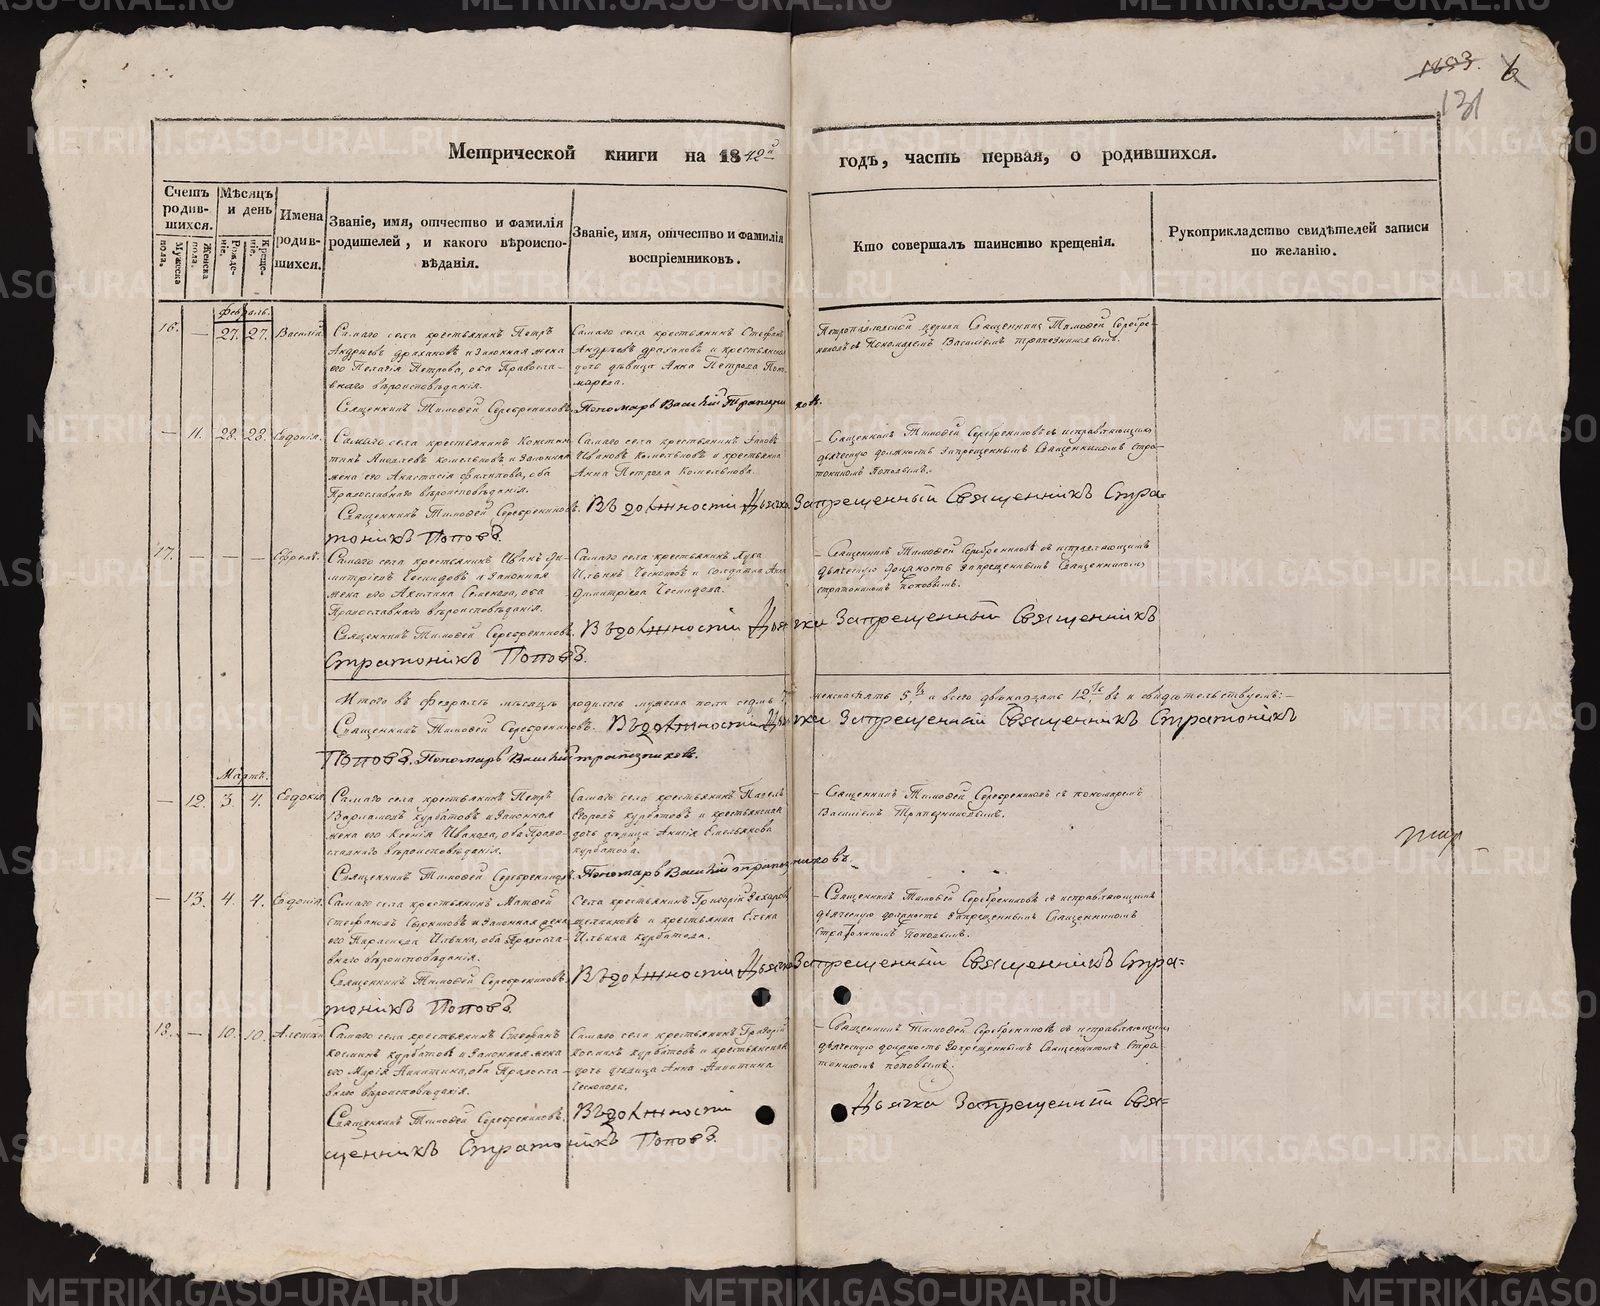 1893. 6
131
Метрической книги на 1842й годъ, часть первая, о родившихся.
Счетъ родив-шихся.
Мужеска пола.
Женска пола.
Мѣсяцъ и день
Рожде-ніе.
Креще-ніе.
Имена родив-шихся.
Званіе, имя, отчество и фамилія родителей, и какого вѣроиспо-вѣданія.
Званіе, имя, отчество и фамилія воспріемниковъ.
Кто совершалъ таинство крещенія.
Рукоприкладство свидѣтелей записи по желанію.
Февраль.
16. — 27. 27. Василій
Самаго села крестьянинъ Петръ
Андреевъ и законная жена
его Пелагія Петрова, оба Правосла-
внаго вѣроисповѣданія.
Самаго села крестьянинъ Стефанъ
Андреевъ и крестьянская
дочь дѣвица Анна Петрова
Петропавловской церкви Священникъ Тимофей Серебре-
никовъ съ Пономаремъ Василіемъ Трапезниковымъ.
Священникъ Тимофей Серебрениковъ. Пономарь Василій Трапезниковъ.
— 11. 28. 28. Евдокія.
Самаго села крестьянинъ Констан-
тинъ и законная
жена его Анастасія Филипова, оба
Православнаго вѣроисповѣданія.
Самаго села крестьянинъ
Ивановъ и крестьянка
Анна Петрова
— Священникъ Тимофей Серебрениковъ съ исправляющимъ
дьяческую должность запрещеннымъ Священникомъ Стра-
тоникомъ Поповымъ.
Священникъ Тимофей Серебрениковъ. Въ должности Дьячка Запрещенный Священникъ Стра-
тоникъ Поповъ.
17. — — — Ефремъ.
Самаго села крестьянинъ Иванъ Ди-
митріевъ и законная
жена его Акилина Семенова, оба
Православнаго вѣроисповѣданія.
Самаго села крестьянинъ Лука
Ильинъ и солдатка Анна
Димитріева
— Священникъ Тимофей Серебрениковъ съ исправляющимъ
дьяческую должность запрещеннымъ Священникомъ
Стратоникомъ Поповымъ.
Священникъ Тимофей Серебрениковъ. Въ должности Дьячка Запрещенный Священникъ
Стратоникъ Поповъ.
Итого въ Февралѣ мѣсяцѣ родилось мужеска пола седмь 7, женска пять 5, и всего двѣнадцать 12, въ чемъ и свидѣтельствуемъ: —
Священникъ Тимофей Серебрениковъ. Въ должности Дьячка Запрещенный Священникъ Стратоникъ
Поповъ. Пономарь Василій Трапезниковъ.
Мартъ.
— 12. 3. 4. Евдокія
Самаго села крестьянинъ Петръ
Варламовъ Курбатовъ и законная
жена его Ксенія Иванова, оба Право-
славнаго вѣроисповѣданія.
Самаго села крестьянинъ Павелъ
Егоровъ Курбатовъ и крестьянская
дочь дѣвица Анисія Емельянова
Курбатова.
— Священникъ Тимофей Серебрениковъ съ пономаремъ
Василіемъ Трапезниковымъ.
Священникъ Тимофей Серебрениковъ. Пономарь Василій Трапезниковъ.
— 13. 4. 4. Евдокія.
Самаго села крестьянинъ Матвей
Стефановъ и законная жена
его Параскева Ильина, оба Правосла-
внаго вѣроисповѣданія.
Села крестьянинъ Григорій Захаровъ
и крестьянка Елена
Ильина Курбатова.
— Священникъ Тимофей Серебрениковъ съ исправляющимъ
дьяческую должность запрещеннымъ Священникомъ
Стратоникомъ Поповымъ.
Священникъ Тимофей Серебрениковъ. Въ должности Дьячка Запрещенный Священникъ Стра-
тоникъ Поповъ.
18. — 10. 10. Алексій
Самаго села крестьянинъ Стефанъ
Косминъ Курбатовъ и законная жена
его Марія Никитина, оба Правосла-
внаго вѣроисповѣданія.
Самаго села крестьянинъ Григорій
Косминъ Курбатовъ и крестьянская
дочь дѣвица Анна Никитина
— Священникъ Тимофей Серебрениковъ съ исправляющимъ
дьяческую должность запрещеннымъ Священникомъ Стра-
тоникомъ Поповымъ.
Священникъ Тимофей Серебрениковъ. Въ должности Дьячка Запрещенный Свя-
щенникъ Стратоникъ Поповъ.
METRIKI.GASO-URAL.RU